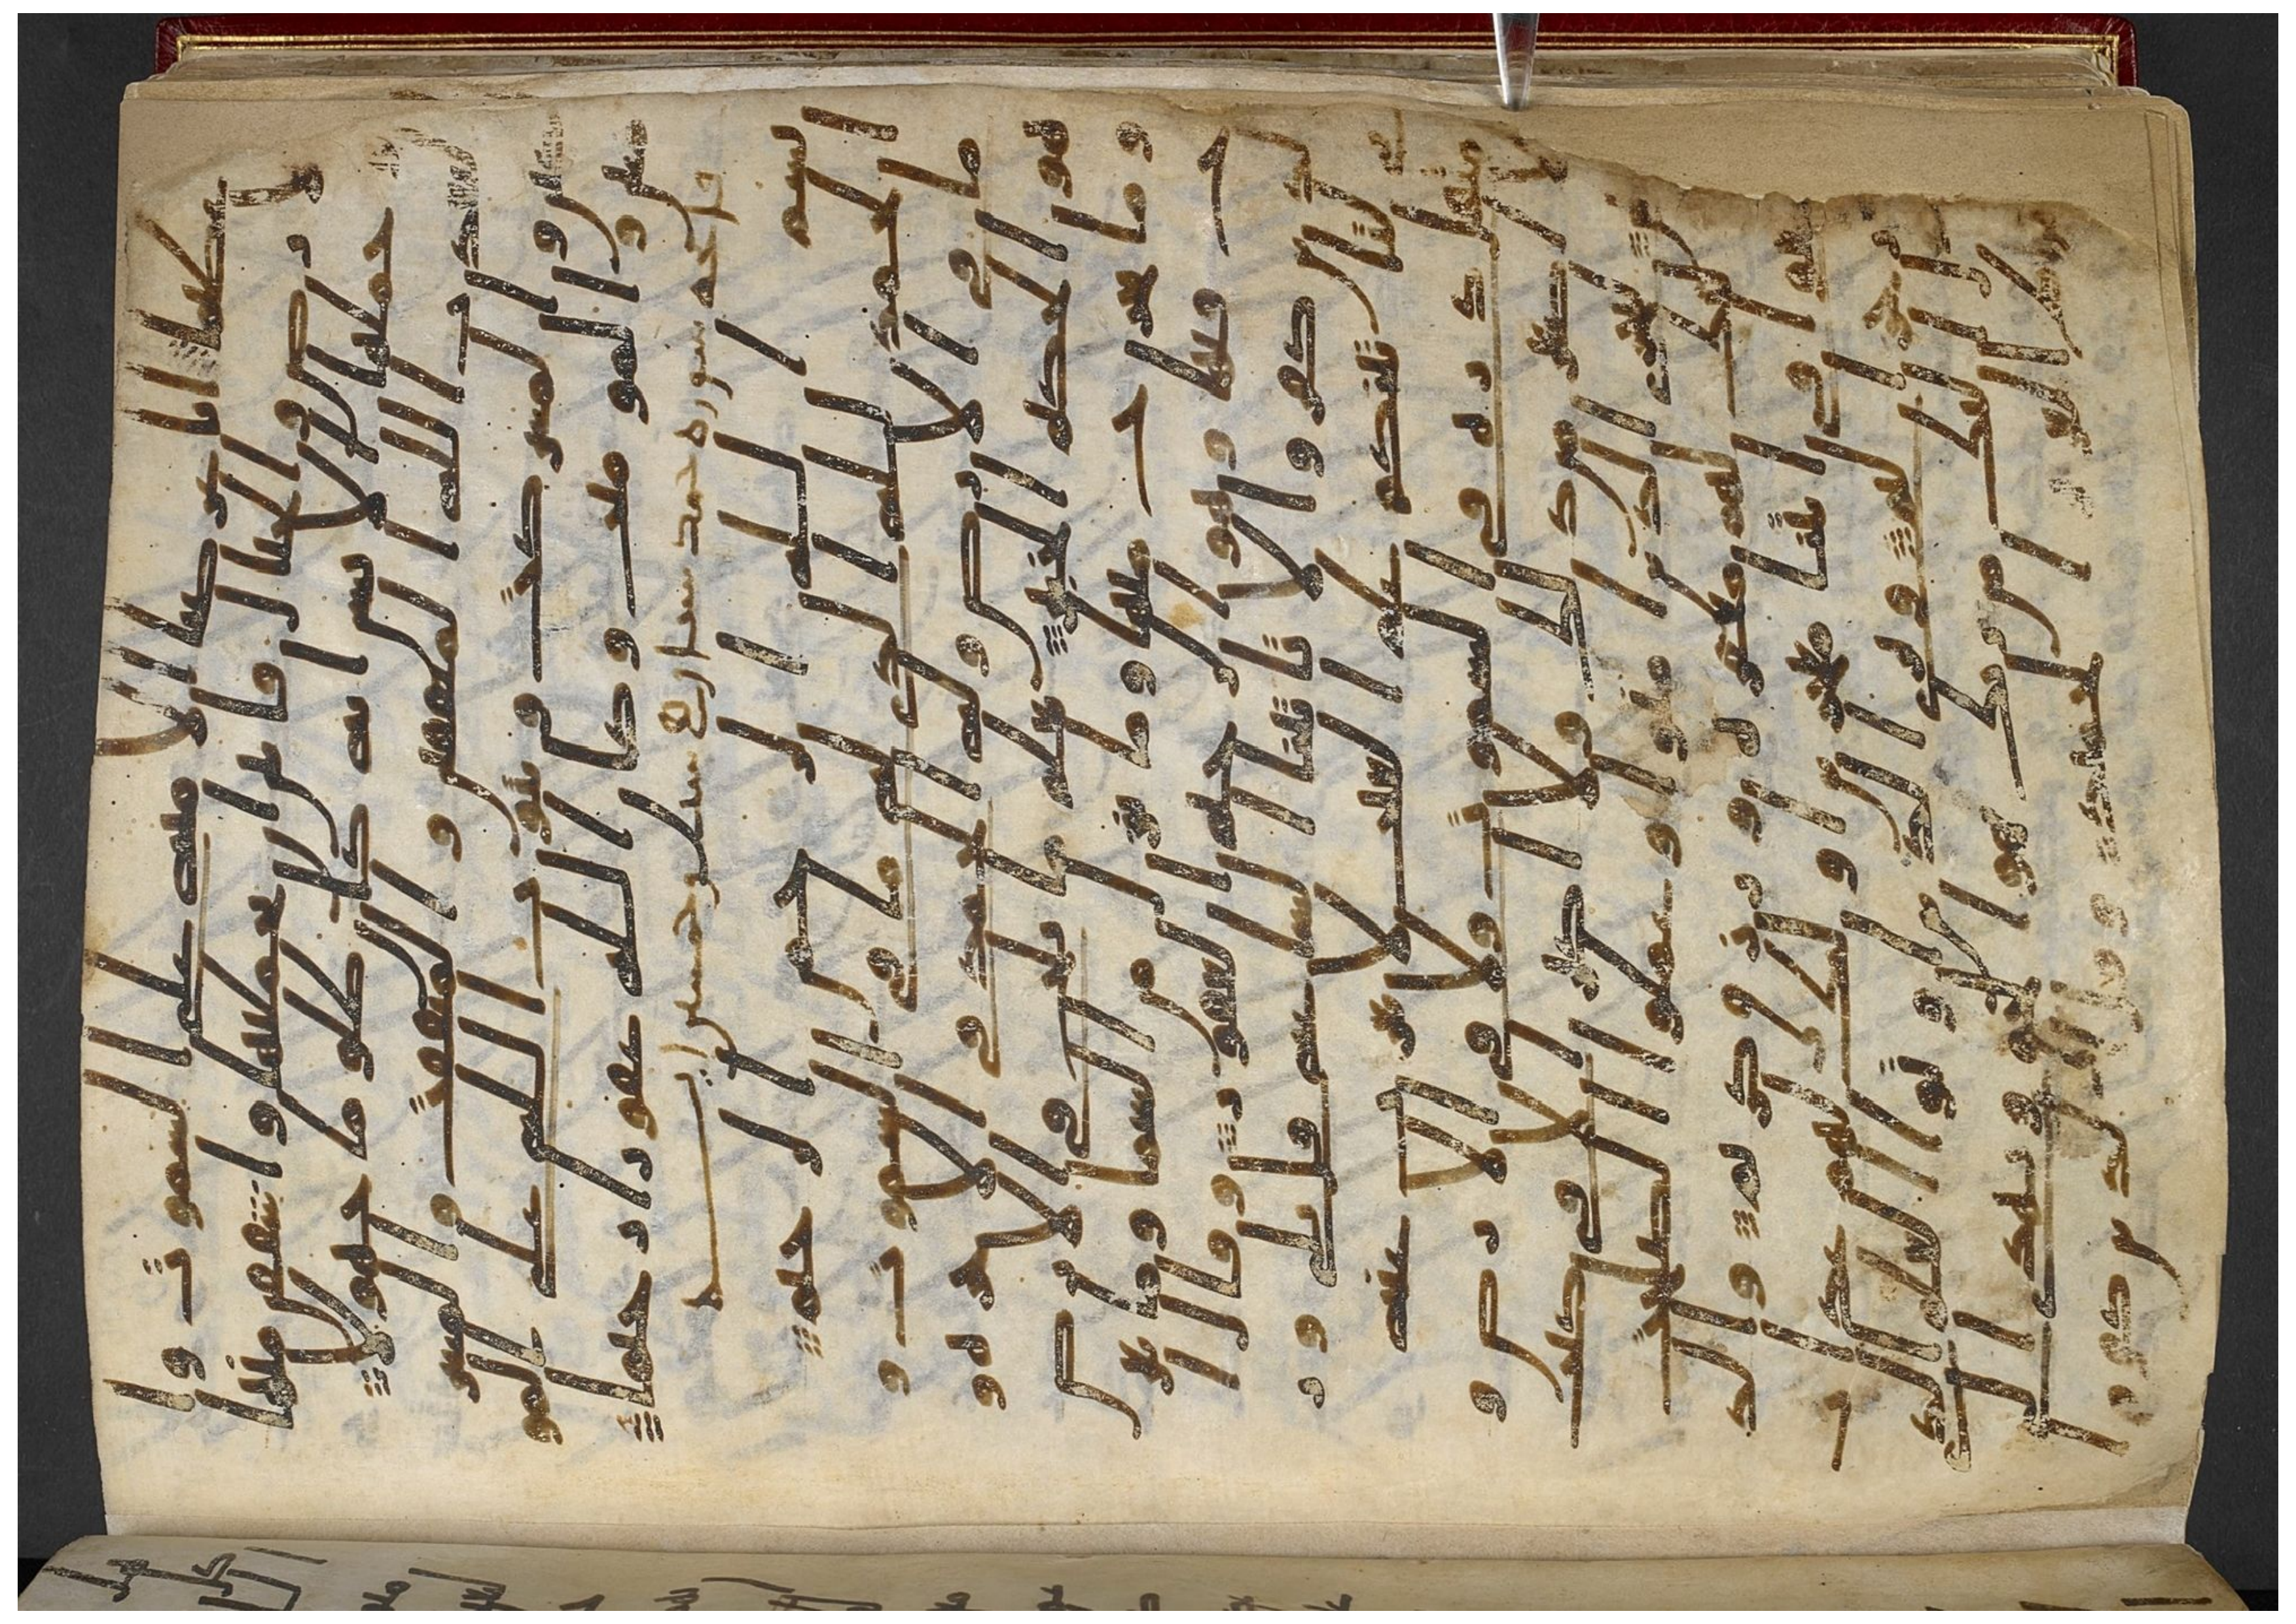 كبيرا انا عرضنا الامنه على السموت وا
لارض والجبال فابين ان يحملنها واشفقن منها
وحملها الانسن انه كان ظلوما جهولا
ليعذب الله المنفقين والمنفقت والمشر
كين والمشركت ويتوب الله على المو
منين والمومنت وكان الله غفورا رحيما
سوره سبا اربع وخمسون ايه
بسم الله الرحمن الرحيم
الحمد لله الذي له ما في السموت و
ما في الارض وله الحمد في الاخره وهو
الحكيم الخبير يعلم ما يلج في الارض
وما يخرج منها وما ينزل من السما وما يعر
ج فيها وهو الرحيم الغفور وقال ا
لذين كفروا لا تاتينا الساعه قل بلى ور
بي لتاتينكم علم الغيب لا يعزب عنه
مثقل ذره في السموت ولا في الار
ض ولا اصغر من ذلك ولا اكبر الا في كتب
مبين ليجزي الذين امنوا وعملوا الصلحت
اوليك لهم مغفره ورزق كريم والذ
ين سعو في ايتنا معجزين اوليك لهم عذ
اب من رجز اليم ويرى الذين اوتوا العلم الذ
ي انزل اليك من ربك هو الحق ويهدي ا
لى صرط العزيز الحميد وقال الذين كفرو